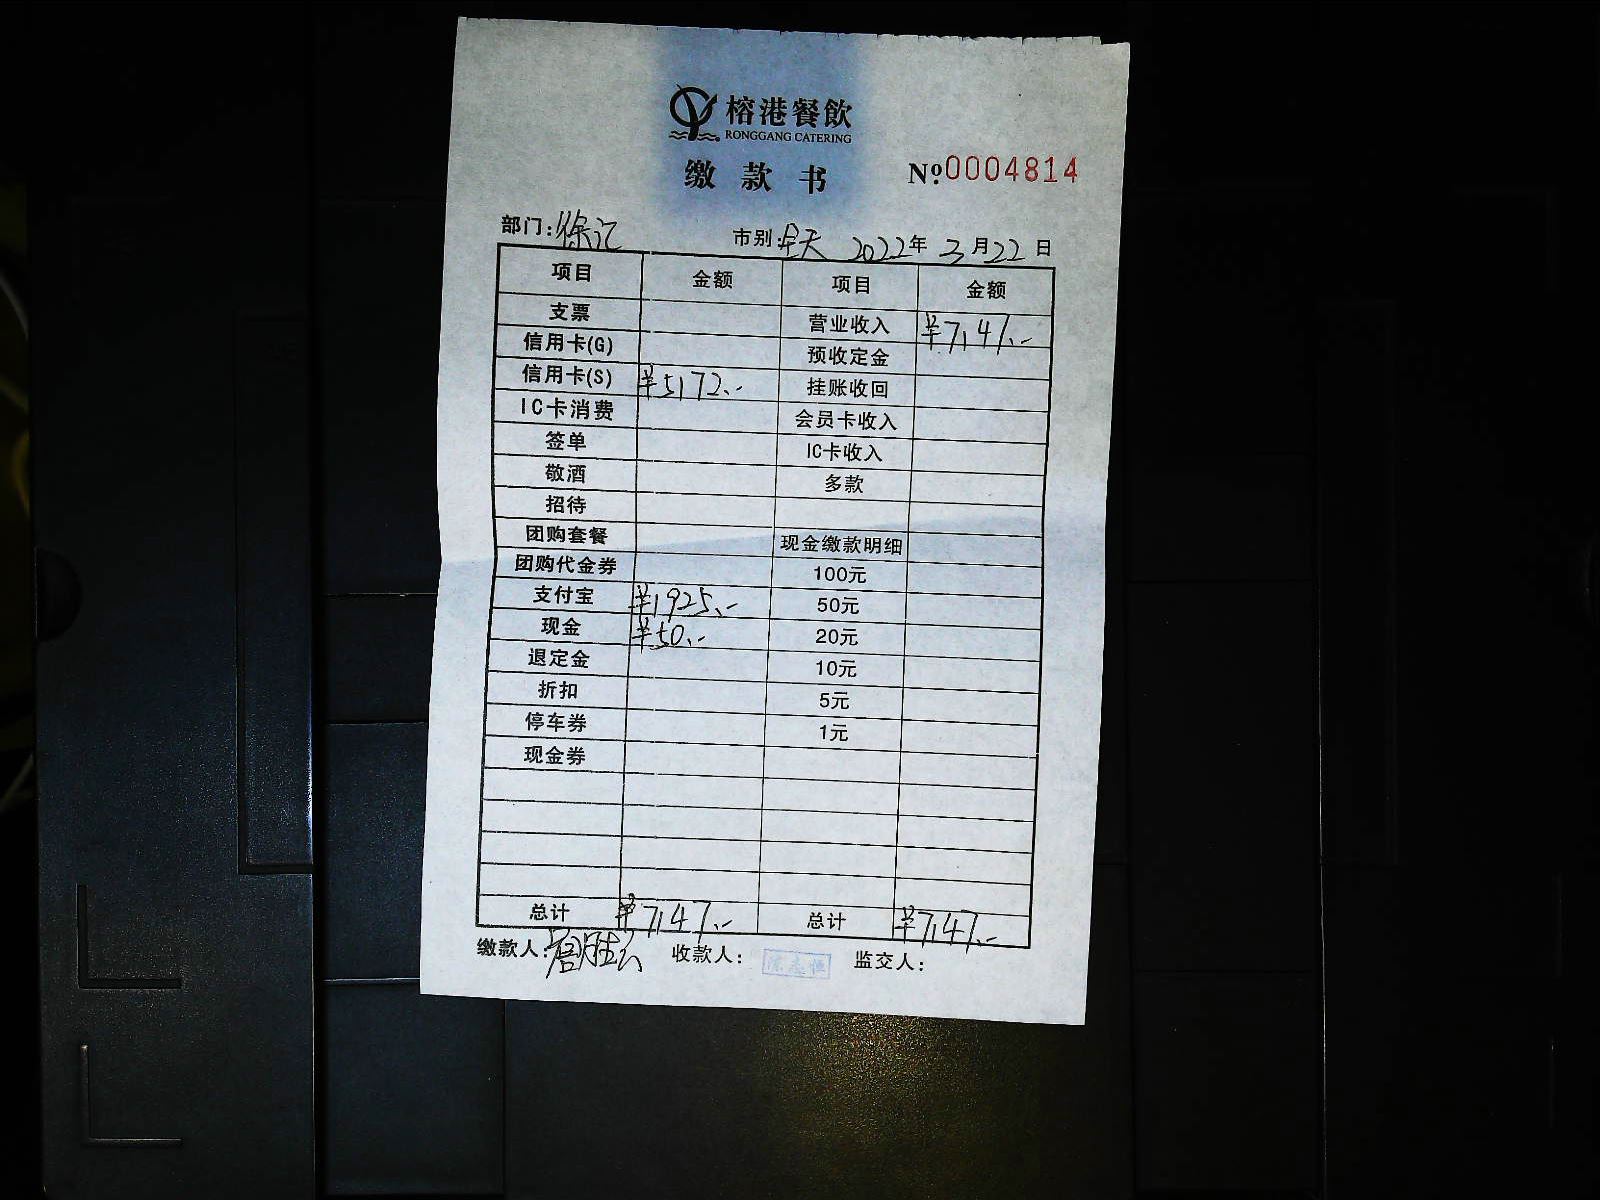 榕港餐飲
RONGGANG CATERING
缴款书 Nº:0004814
部门:徐汇 市别:全天 2022年3月22日
项目 金额 项目 金额
支票 营业收入 ¥7147.-
信用卡(G) 预收定金
信用卡(S) ¥5172.- 挂账收回
IC卡消费 会员卡收入
签单 IC卡收入
敬酒 多款
招待
团购套餐 现金缴款明细
团购代金券 100元
支付宝 ¥1925.- 50元
现金 ¥50.- 20元
退定金 10元
折扣 5元
停车券 1元
现金券
总计 ¥7147.- 总计 ¥7147.-
缴款人: 收款人: 监交人: